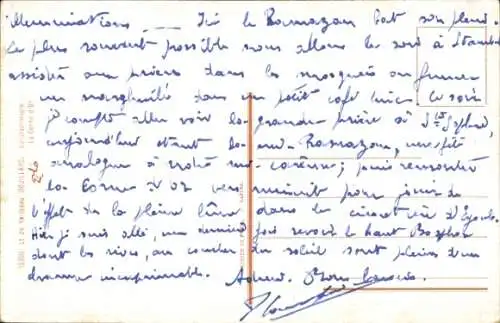 illuminations __ Ici le Ramazan bat son plein.
Le plus souvent possible nous allons le soir à Stamboul
assister aux prières dans les mosquées ou fumer
un narghuilé dans un petit café turc. Ce soir
je compte aller voir la grande prière à Ste Sophie
aujourd'hui étant le mi-Ramazan, une fête
analogue à notre mi-carême; puis remonter
la Corne d'or vers minuit pour jouir de
l'effet de la pleine lune dans le cimetière d'Eyoub.
Hier je suis allé, une dernière fois revoir le haut Bosphore
dont les rives, au coucher du soleil sont pleines d'un
charme inexprimable. Adieu. Bons baisers